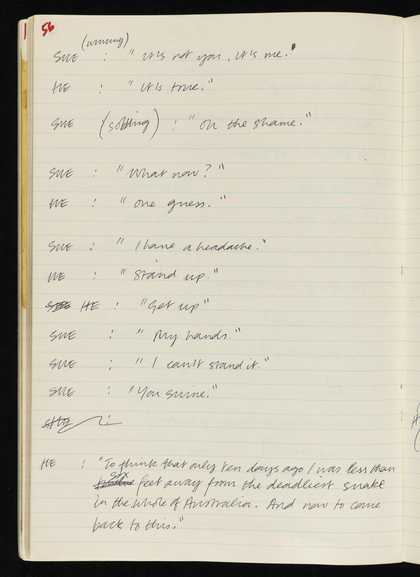 56
(uncury)
SHE : "it's not you, it's me."
HE : "it's true."
SHE (sobbing) : "Oh the shame."
SHE : "What now?"
HE : "one guess."
SHE : "I have a headache."
HE : "Stand up"
HE : "Get up"
SHE : "My hands."
SHE : "I can't stand it."
SHE : "You swine."
SHE :
HE : "To think that only ten days ago I was less than
six feet away from the deadliest snake
in the whole of Australia. And now to come
back to this."